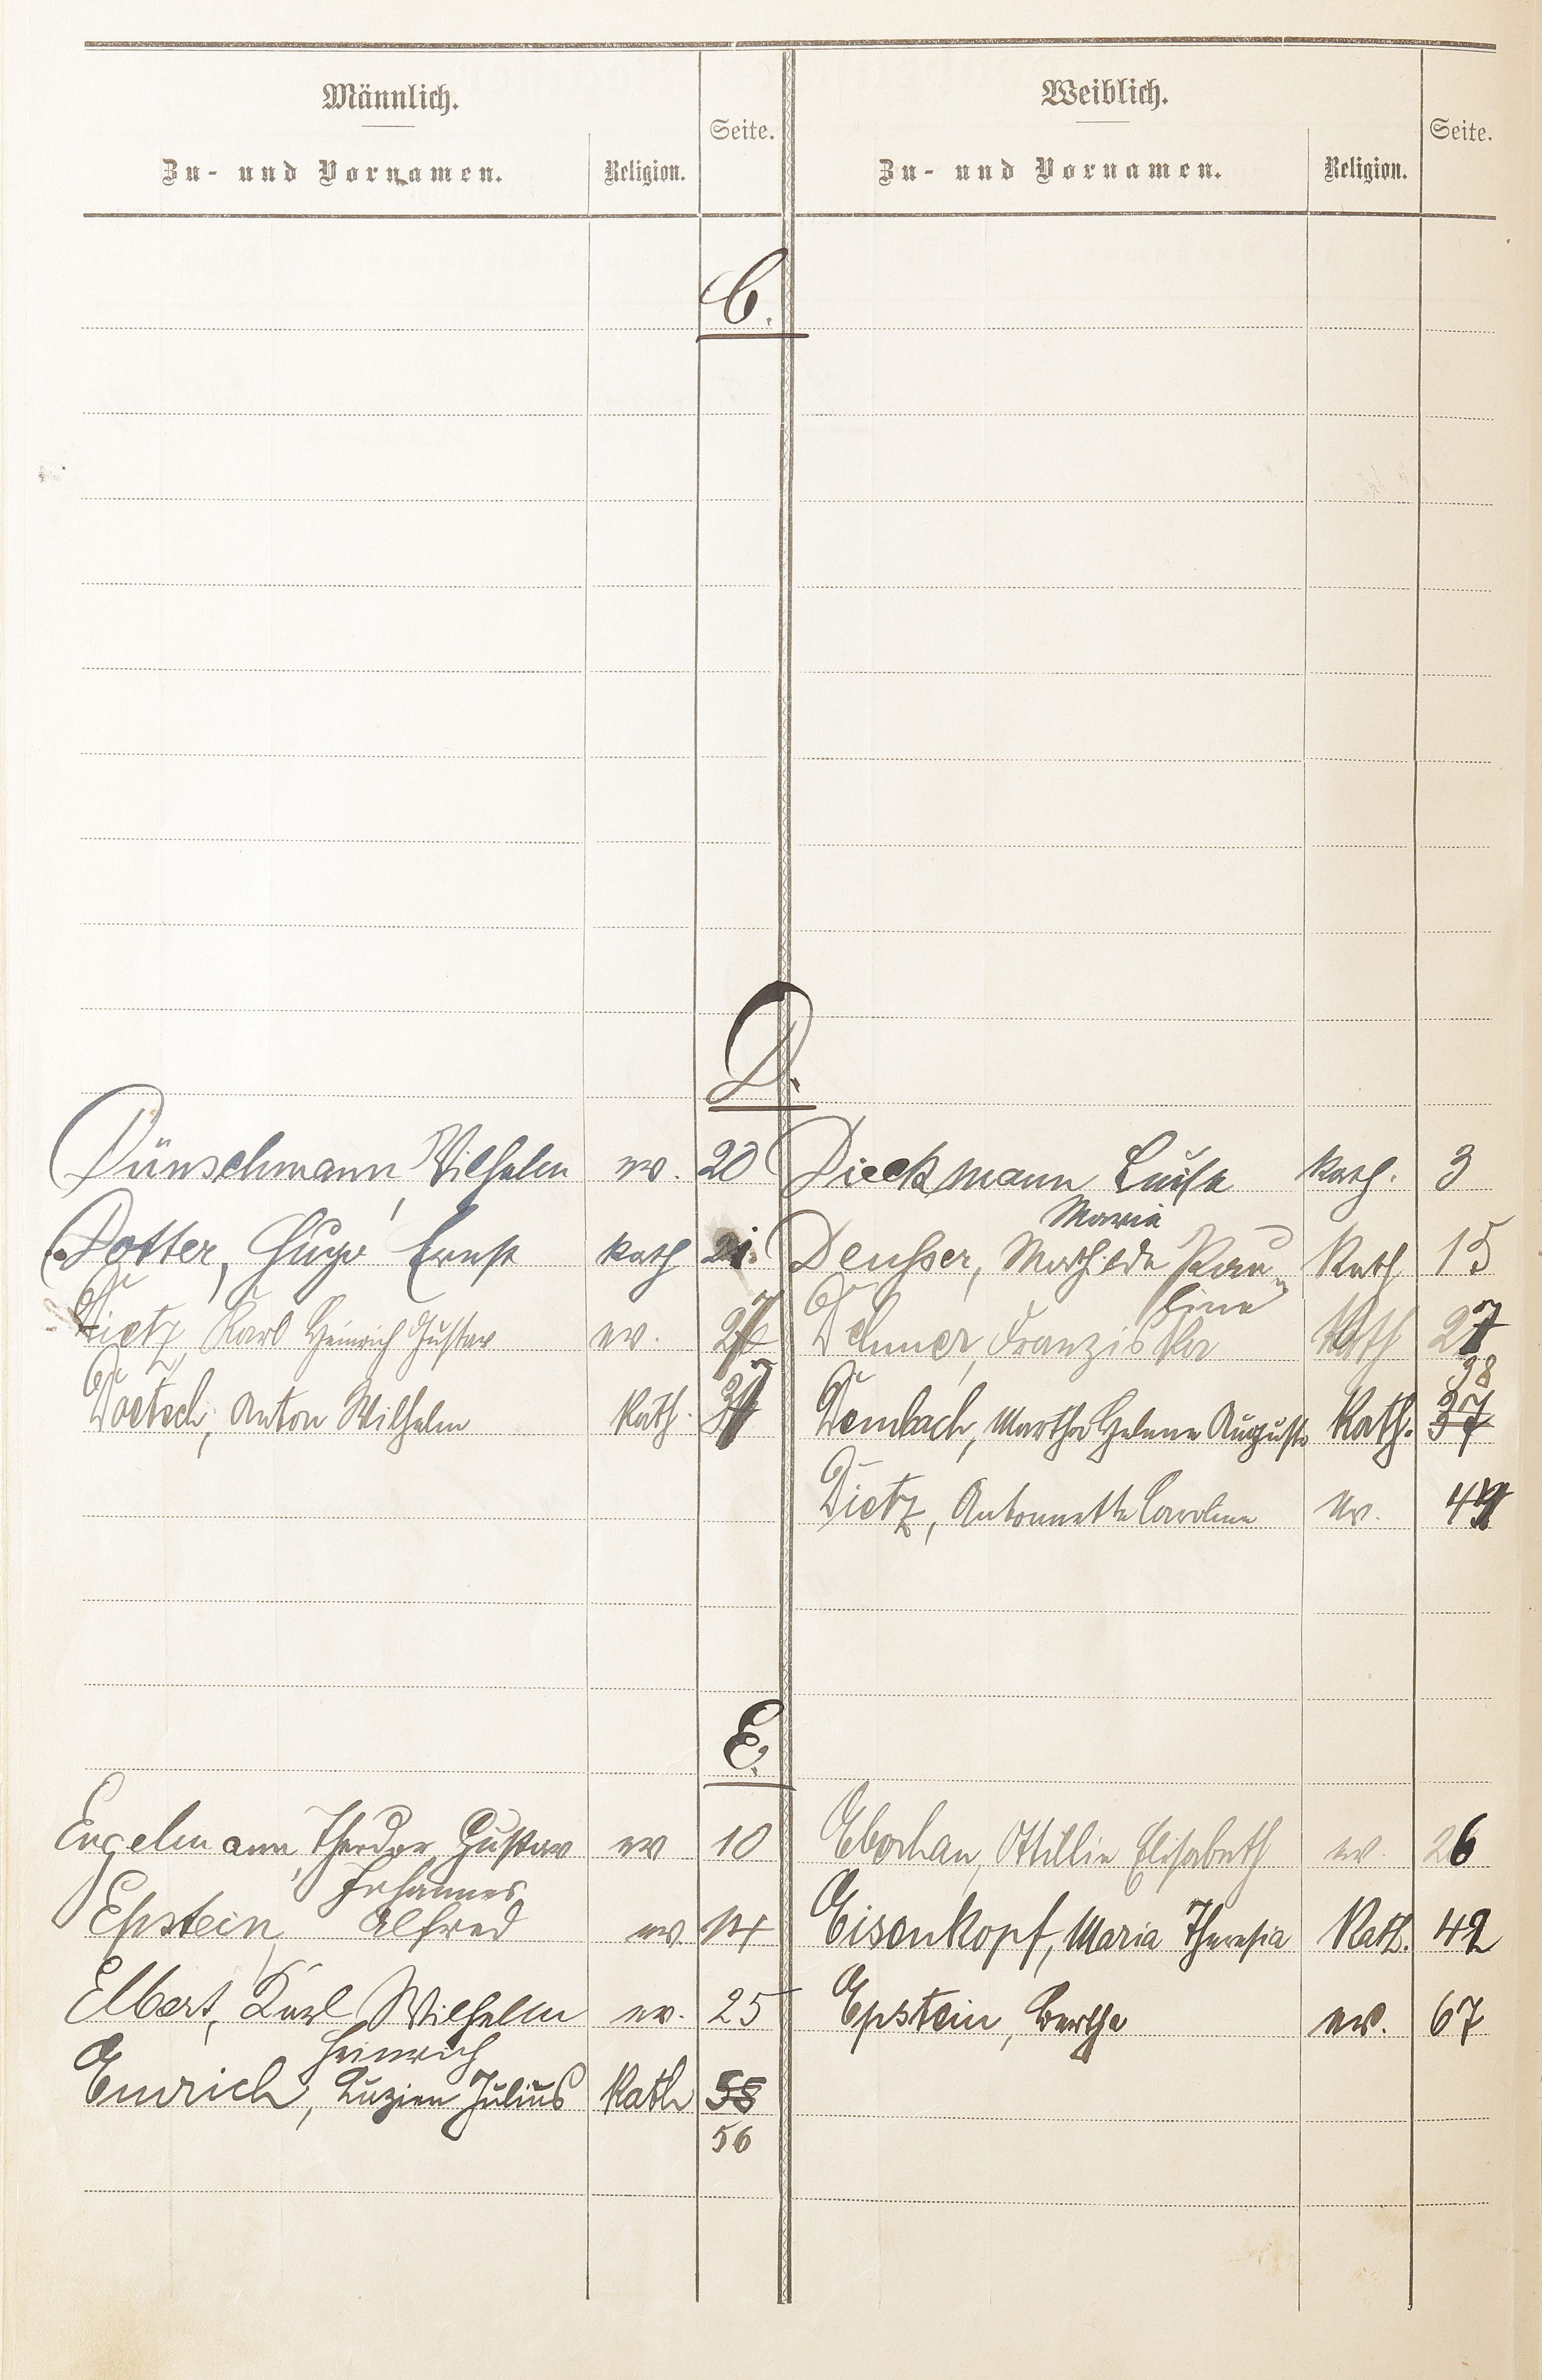 Männlich.
Weiblich.
Seite.
Seite.
Zu- und Vornamen.
Religion.
Zu- und Vornamen.
Religion.
C.
D.
Dünschmann, Wilhelm ev. 20
Dieckmann Luise Kath. 3
Maria
Dotter, Hugo Ernst Kath 21.
Deusser, Mathilde Pau- Kath 15
line
Dietz, Karl Heinrich Gustav ev.
Dehmer, Franziska Kath 27
38
Doetsch, Anton Wilhelm Kath.
Dembach, Martha Helene Auguste Kath. 37
Dietz, Antonnette Caroline ev.
E.
Engelmann, Theodor Gustav ev 10
Johannes
Eberhan, Ottillie Elisabeth ev. 26
Epstein, Alfred ev. 14
Eisenkopf, Maria Theresia Kath. 42
Elbert, Karl Wilhelm ev. 25
Heinrich
Epstein, Bertha ev. 67
Emrich, Luzien Julius Kath 58
56